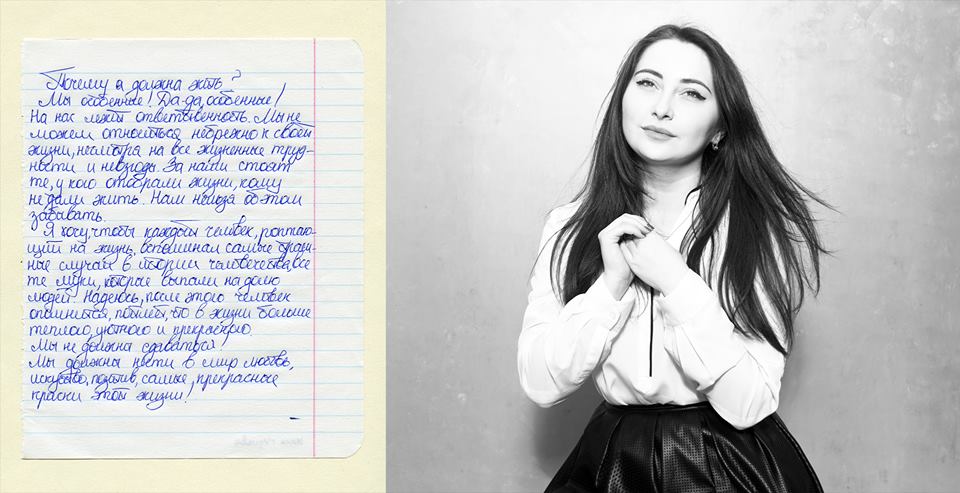 Почему я должна жить?
Мы особенные! Да-да, особенные!
На нас лежит ответственность. Мы не
можем относиться небрежно к своей
жизни, несмотря на все жизненные труд-
ности и невзгоды. За нами стоят
те, у кого отобрали жизни, кому
не дали жить. Нам нельзя об этом
забывать.
Я хочу, чтобы каждый человек, роптаю-
щий на жизнь, вспоминал самые
ные случаи в истории человечества, все
те муки, которые выпали на долю
людей. Надеюсь, после этого человек
опомнится, поймёт, что в жизни больше
теплого, уютного и прекрасного.
Мы не должны сдаваться!
Мы должны нести в мир любовь,
искусство, позитив, самые, прекрасные
краски этой жизни!